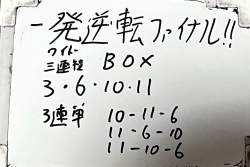 一発逆転ファイナル!!
ワイド
三連複 BOX
3・6・10・11
3連単 10-11-6
11-6-10
11-10-6